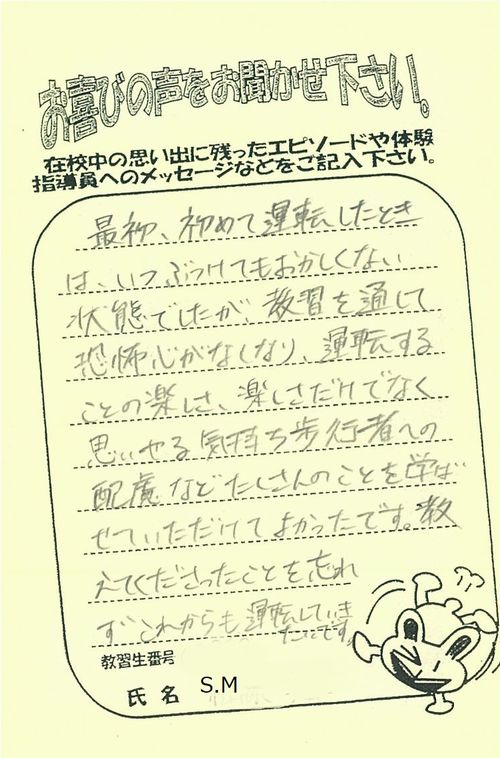 お喜びの声をお聞かせ下さい。
在校中の思い出に残ったエピソードや体験
指導員へのメッセージなどをご記入下さい。
最初、初めて運転したとき
は、いつぶつけてもおかしくない
状態でしたが、教習を通して
恐怖心がなくなり、運転する
ことの楽しさ、楽しさだけでなく
思いやる気持ち歩行者への
配慮などたくさんのことを学ば
せていただけてよかったです。教
えてくださったことを忘れ
ずこれからも運転していき
たいです。
教習生番号
氏名 S.M